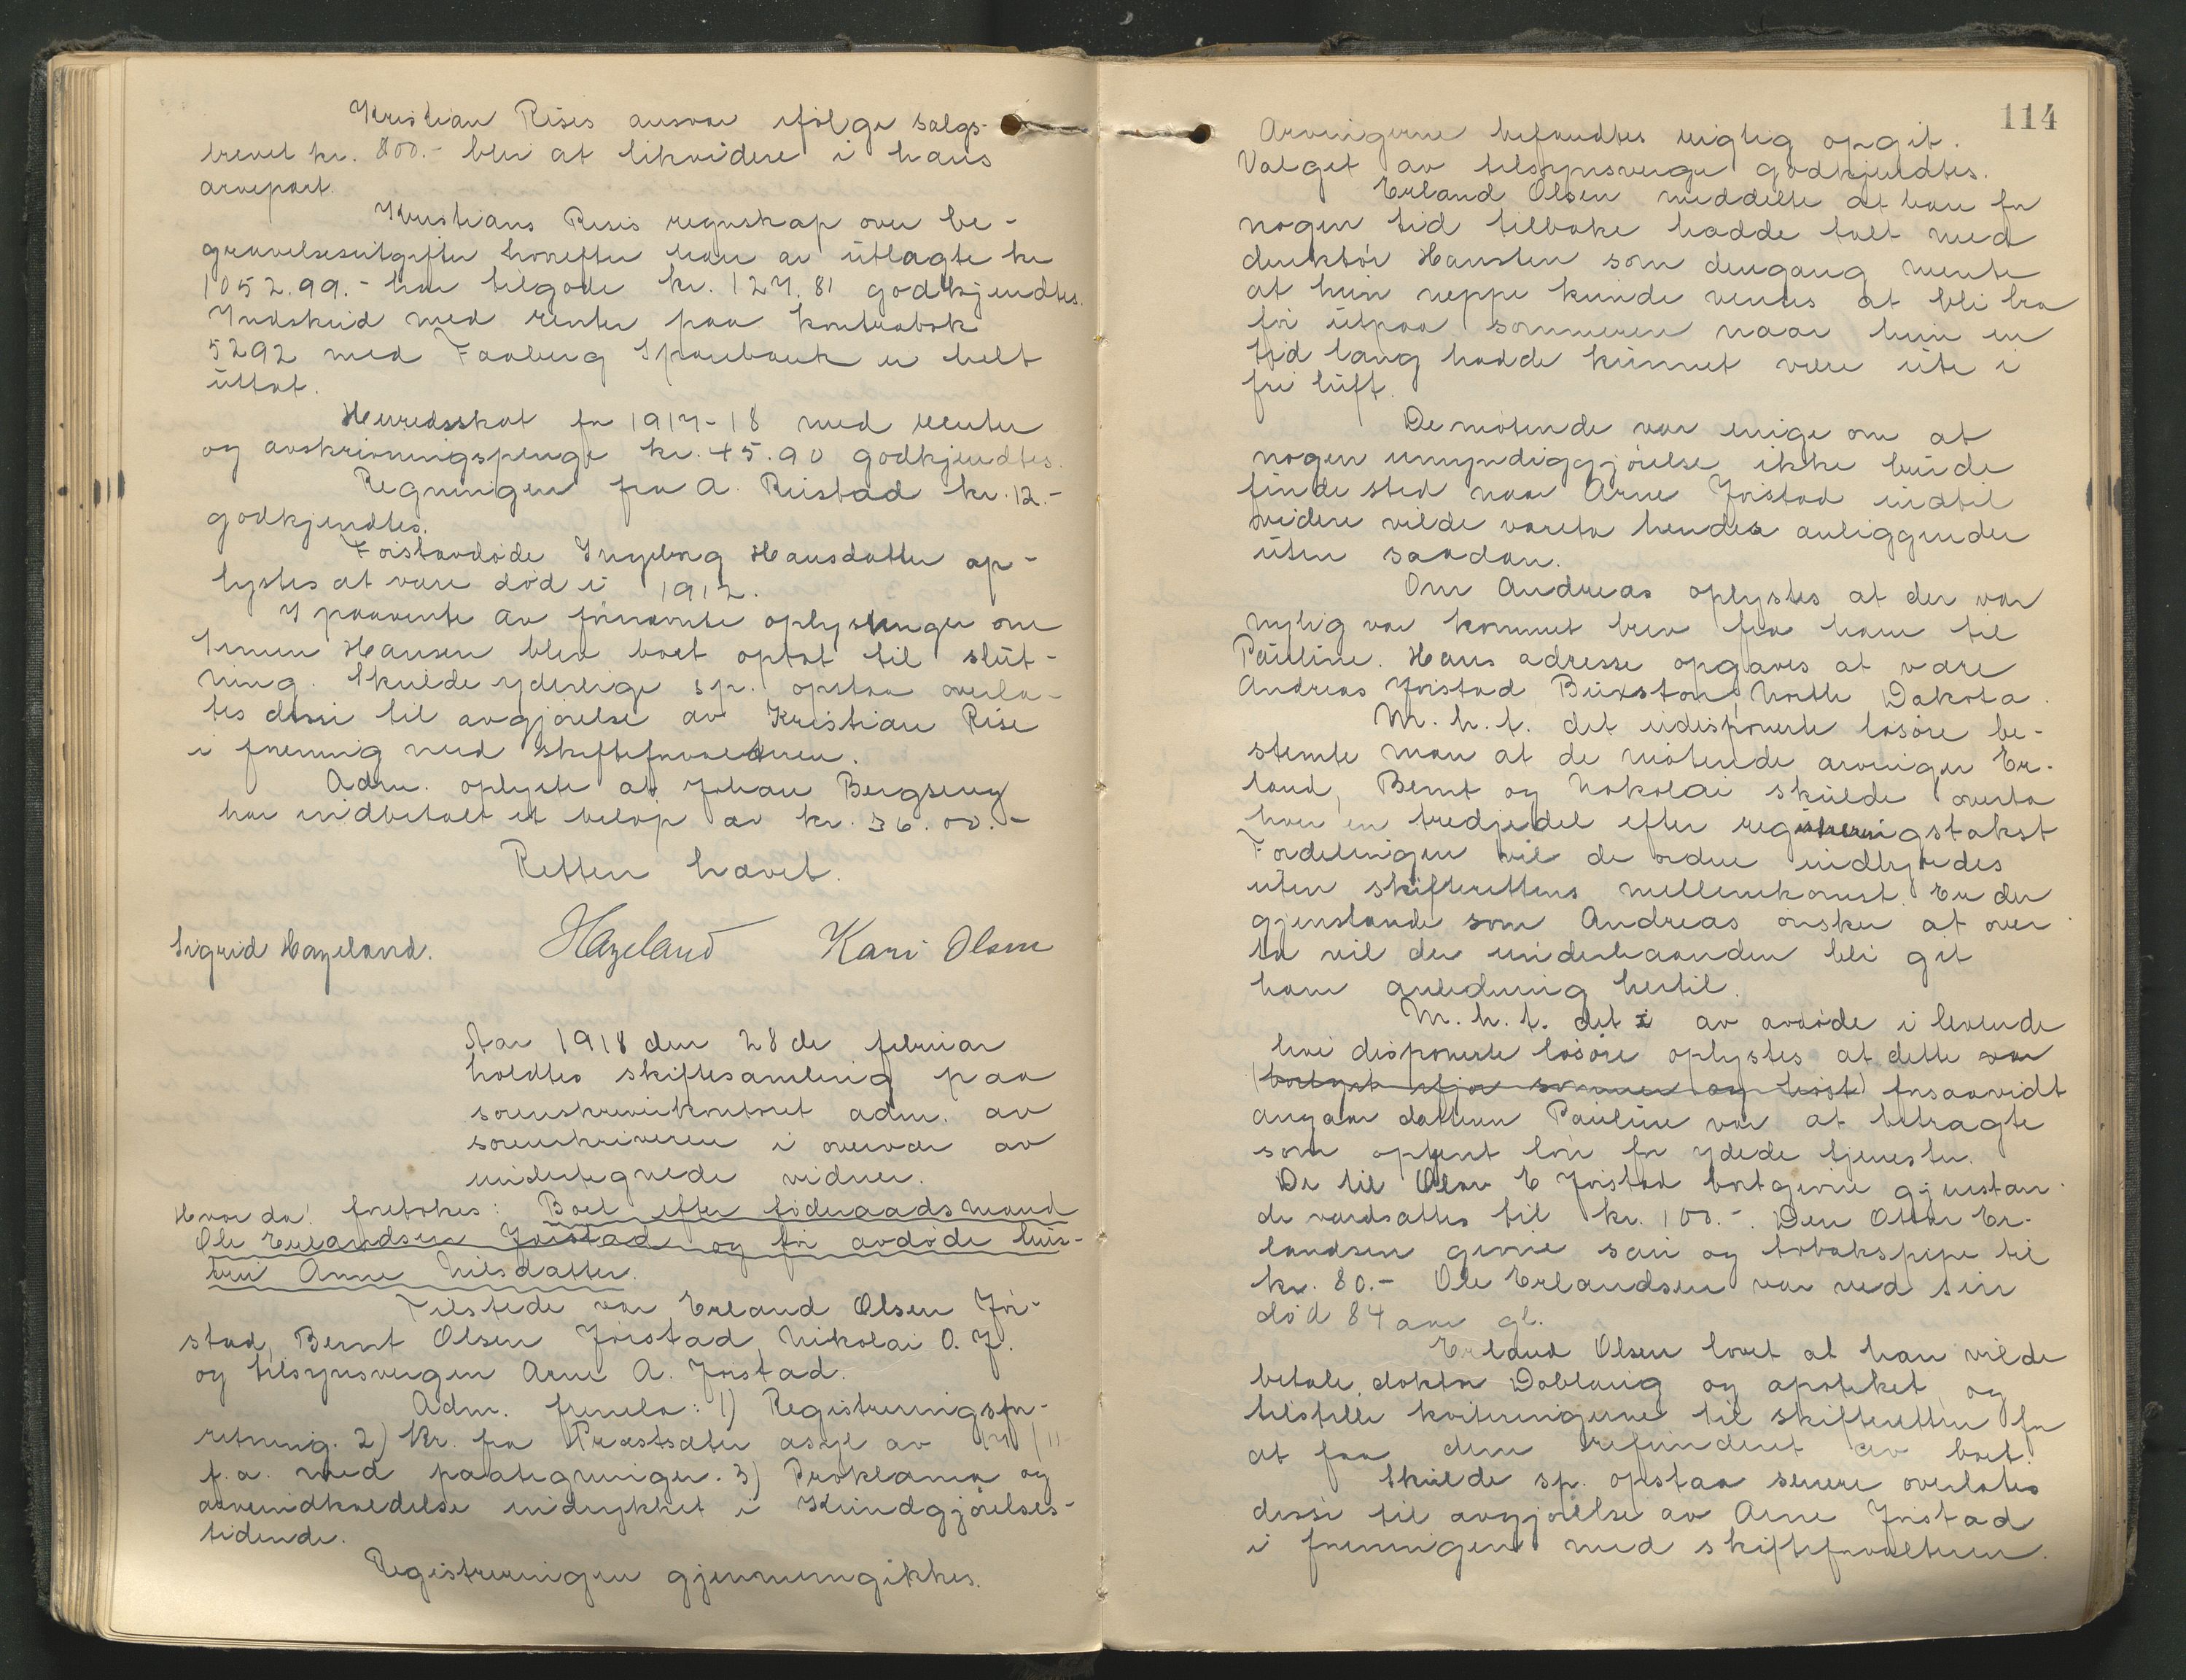 Kristian Rises ansvar ifølge salgs-
brevet kr. 800.- blir at likvidere i hans
arvepart.
Kristians Rises regnskap over be-
gravelsesutgifter hvorefter han av utlagte kr
1052.99.- har tilgode kr. 127.81 godkjendtes.
Indskud med renter paa kontrabok
5292 med Faaberg Sparebank er helt
uttat.
Herredsskat for 1917-18 med renter
og avskrivningspenge kr. 45.90 godkjendtes.
Regningen fra A. Rustad kr. 12.-
godkjendtes.
Førstavdøde Ingeborg Hansdatter op-
lystes at være død i 1912.
I paavente av fornævnte oplysninger om
Simen Hansen blev boet optat til slut-
ning. Skulde yderlige sp. opstaa overla-
tes disse til avgjørelse av Kristian Rise
i forening med skifteforvalteren.
Adm. oplyste at Johan Bergseng
har indbetalt et beløp av kr. 36.00.-
Retten hævet.
Sigrid Hazeland. Hazeland Kari Olsen
Aar 1918 den 28de februar
holdtes skiftesamling paa
sorenskriverkontoret adm. av
sorenskriveren i overvær av
undertegnede vidner.
Hvor da! foretokes: Boet efter føderaadsmand
Ole Erlandsen Jørstad og før avdøde hus-
tru Anne Nilsdatter.
Tilstede var Erland Olsen Jør-
stad, Bernt Olsen Jørstad, Nikolai O. J.
og tilsynsvergen Arne A. Jørstad.
Adm. fremla: 1) Registreringsfor-
retning. 2) Kr. fra Præstsæter asyl av 17/11
f.a. med paategninger. 3) Proklama og
arveindkaldelse indrykket i Kundgjørelses-
tidende.
Registreringen gjennemgikkes.
114
Arvingerne befandtes rigtig opgit.
Valget av tilsynsverge godkjendtes.
Erland Olsen meddelte at han for
nogen tid tilbake hadde talt med
direktør Hansten som dengang mente
at hun neppe kunde ventes at bli bra
før utpaa sommeren naar hun en
tid lang hadde kunnet være ute i
fri luft.
De møtende var enige om at
nogen umyndiggjørelse ikke burde
finde sted naar Arne Jørstad indtil
videre vilde vareta hendes anliggender
uten saadan.
Om Andreas oplystes at der var
nylig var kommet brev fra ham til
Pauline. Hans adresse opgaves at være
Andreas Jørstad Buxston, North Dakota.
M. h. t. det udisponerte løsøre be-
stemte man at de møtende arvinger Er-
land, Bernt og Nokolai skulde overta
hver en tredjedel efter registreringstakst
Fordelingen vil de ordne indbyrdes
uten skifterettens mellemkomst. Er der
gjenstande som Andreas ønsker at over
ta vil der underhaanden bli git
ham anledning hertil.
M. h. t. det i av avdøde i levende
live disponerte løsøre oplystes at dette var
(bortgit ifjor sommer og høst) forsaavidt
angaar datteren Pauline var at betragte
som optjent løn for ydede tjenester.
De til Olav E Jørstad bortgivne gjenstan-
de værdsattes til kr. 100.-. Den Ottar Er-
landsen givne sau og tobakspipe til
kr. 80.- Ole Erlandsen var ved sin
død 84 aar gl.
Erland Olsen lovet at han vilde
betale doktor Dobloug og apoteket, og
tilstille kvitteringerne til skifteretten for
at faa dem refunderet av boet.
Skulde sp. opstaa senere overlates
disse til avgjørelse av Arne Jørstad
i foreningen med skifteforvalteren.